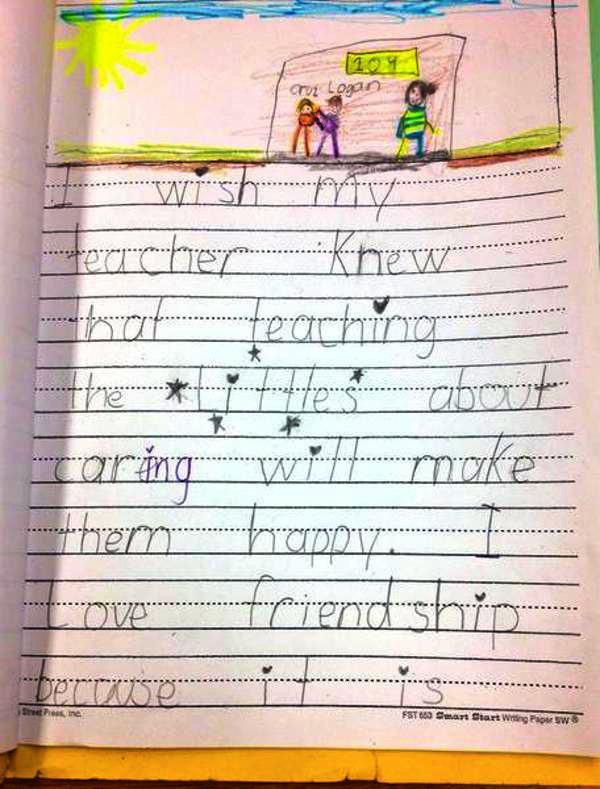 104
Cruz Logan
I wish my
teacher Knew
that teaching
the Littles about
caring will make
them happy. I
Love friendship
becuase it is
Street Press, Inc. FST 653 Smart Start Writing Paper SW ®